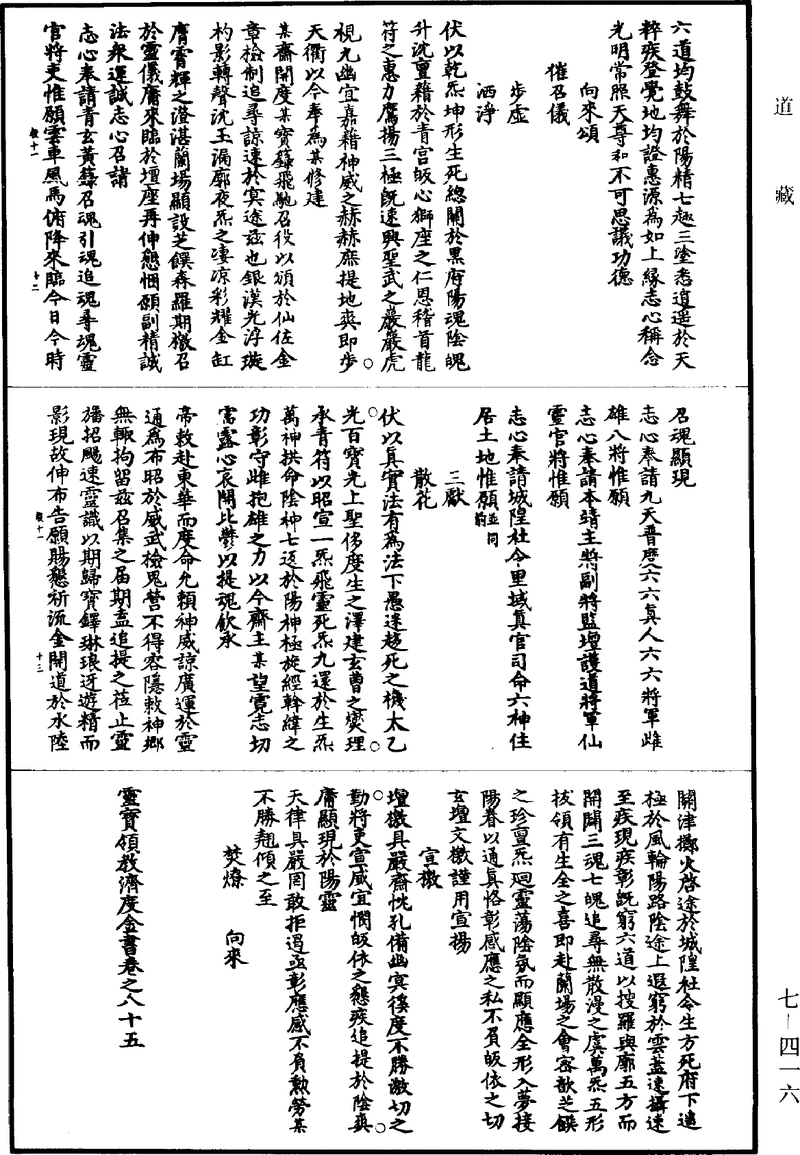 道藏
六道均鼓舞於陽精七趣三塗悉逍遥於天
粹疾登覺地均證惠源為如上緣志心稱念
光明常照天尊和不可思議功德
向來頌
催召儀
步虛
洒淨
伏以乾炁坤形生死總關於黑府陽魂陰魄
升沈亶藉於青宮皈心獅座之仁恩稽首龍
符之惠力鷹揚三極旣速興聖武之嚴嚴虎
視九幽宜嘉藉神威之赫赫庶提地爽即步○
天衢以今奉為某修建
某齋開度某寶籙飛馳召役以頒於仙佐金
章檢制追尋諒速於冥途兹也銀漢光浮璇
杓影轉聲沈玉漏廓夜炁之凄凉彩耀金缸
膺霄輝之澄湛蘭場顯設芝饌森羅期檄召
於靈儀庸來臨於壇座再伸懇悃願副精誠
法衆運誠志心召請
志心奉請青玄黃籙召魂引魂追魂尋魂靈
官將吏惟願雲車風馬俯降來臨今日今時
敬十一
十二
召魂顯現
志心奉請九天晋度六六真人六六將軍雌
雄八將惟願
志心奉請本靖主將副將監壇護道將軍仙
靈官將惟願
志心奉請城隍社令里域真官司命六神住
居土地惟願並同前
三獻
散花
伏以真實法有為法下愚迷超死之機太乙○
○光百寶光上聖侈度生之澤建玄曹之爕理
承青符以昭宣一炁飛靈死炁九還於生炁
萬神拱命陰神七返於陽神極旋經斡緯之
功彰守雌抱雄之力以今齋主某望霓志切
需靈心衣開比欝以提魂欽承
帝敕赴東華而度命允賴神威諒廣運於靈
通為布昭於威武檢鬼營不得容隱敕神鄉
無輙拘留兹召集之届期盍追提之莅止靈
旛招颺速靈識以期歸寶鐸琳琅迓遊精而
影現故伸布告願賜懇祈流金開道於水陸
敬十一
十三
關津擲火啓途於城隍社令生方死府下遣
極於風輪陽路陰途上遐窮於雲蓋速攝速
至疾現疾彰旣窮六道以搜羅與廓五方而
開闢三魂七魄追尋無散漫之虞萬炁五形
拔領有生全之喜即赴蘭場之會容歆芝饌
之珍亶炁迴靈蕩陰氛而顯應全形入夢接
陽春以通真恪彰感應之私不負皈依之切
玄壇文檄謹用宣揚
宣檄
壇檄具嚴齋悅孔備幽冥徯度不勝激切之○
○勤將吏宣威宜憫皈依之懇疾追提於陰爽
庸顯現於陽靈
天律具嚴罔敢拒遏亟彰應感不負勲勞某
不勝翹傾之至
焚燎 向來
靈寶領教濟度金書卷之八十五
七-四一六